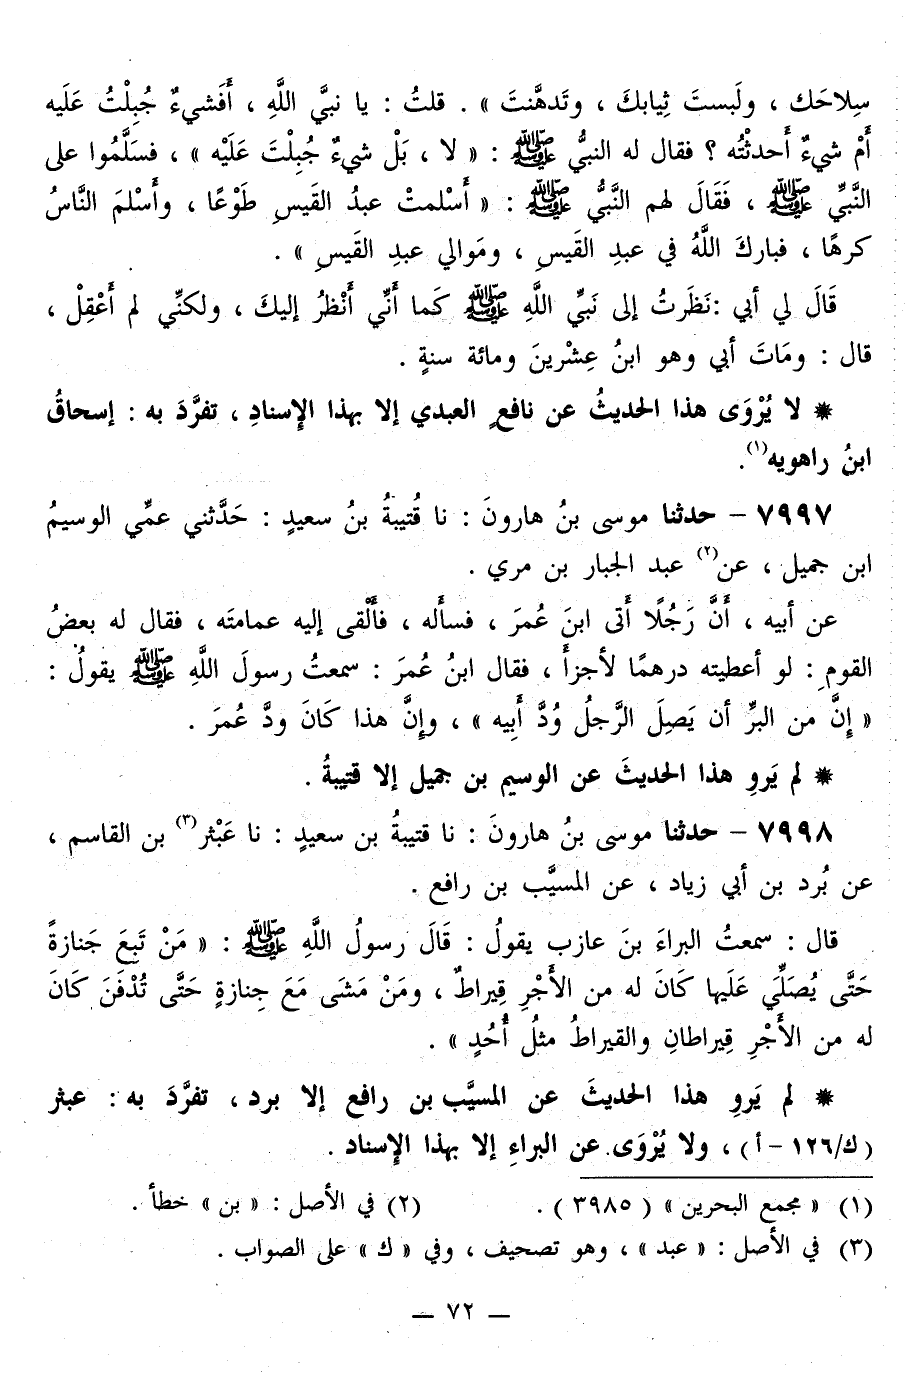 سِلاحَك ، ولَبستَ ثِيابكَ ، وتَدهَّنتَ » . قلتُ : يا نبيَّ اللَّهِ ، أَفَشيءٌ جُبِلْتُ عَلَيه
أَمْ شيءٌ أَحدثْتُه ؟ فقال له النبيُّ ﷺ : « لا ، بَلْ شيءٌ جُبِلْتَ عَلَيْه » ، فسَلَّمُوا على
النَّبيِّ ﷺ ، فَقَالَ لهم النَّبيُّ ﷺ : « أَسْلمتْ عبدُ القَيسِ طَوْعًا ، وأَسْلمَ النَّاسُ
كرهًا ، فباركَ اللَّهُ في عبدِ القَيسِ ، ومَوالي عبدِ القَيسِ » .
قَالَ لي أبي :نَظَرتُ إلى نَبيِّ اللَّهِ ﷺ كَما أَنِّي أَنْظرُ إليكَ ، ولكنِّي لم أَعْقِلْ ،
قال : ومَاتَ أبي وهو ابنُ عِشْرينَ ومائة سنةٍ .
* لا يُرْوَى هذا الحديثُ عن نافعٍ العبدي إلا بهذا الإِسنادِ ، تفرَّدَ به : إسحاقُ
ابنُ راهويه(١).
٧٩٩٧ – حدثنا موسى بنُ هارونَ : نا قُتيبةُ بنُ سعيدٍ : حَدَّثني عمِّي الوسيمُ
ابن جميل ، عن(٢) عبد الجبار بن مري .
عن أبيه ، أَنَّ رَجُلًا أَتى ابنَ عُمرَ ، فسأَله ، فأَلْقى إليه عمامتَه ، فقال له بعضُ
القومِ : لو أعطيته درهمًا لأجزأَ ، فقال ابنُ عُمرَ : سمعتُ رسولَ اللَّهِ ﷺ يقولُ :
« إِنَّ من البرِّ أن يَصِلَ الرَّجلُ وُدَّ أَبِيه » ، وإِنَّ هذا كَانَ ودَّ عُمرَ .
* لم يَروِ هذا الحديثَ عن الوسيم بن جميل إلا قتيبةُ .
٧٩٩٨ – حدثنا موسى بنُ هارونَ : نا قتيبةُ بن سعيدٍ : نا عَبْثر(٣) بن القاسم ،
عن بُرد بن أبي زياد ، عن المسيَّب بن رافع .
قال : سمعتُ البراءَ بنَ عازب يقولُ : قَالَ رسولُ اللَّهِ ﷺ : « مَنْ تَبِعَ جَنازةً
حَتَّى يُصَلِّي عَلَيها كَانَ له من الأَجْرِ قِيراطٌ ، ومَنْ مَشَى مَعَ جِنازةٍ حَتَّى تُدْفَنَ كَانَ
له من الأَجْرِ قِيراطانِ والقيراطُ مثلُ أُحُدٍ » .
* لم يَروِ هذا الحديثَ عن المسيَّب بن رافع إلا برد ، تفرَّدَ به : عبثر
(ك/١٢٦ – أ) ، ولا يُرْوَى عن البراءِ إلا بهذا الإِسناد .
(١) « مجمع البحرين » (٣٩٨٥) . (٢) في الأصل : « بن » خطأ .
(٣) في الأصل : « عبد » ، وهو تصحيف ، وفي « ك » على الصواب .
— ٧٢ —